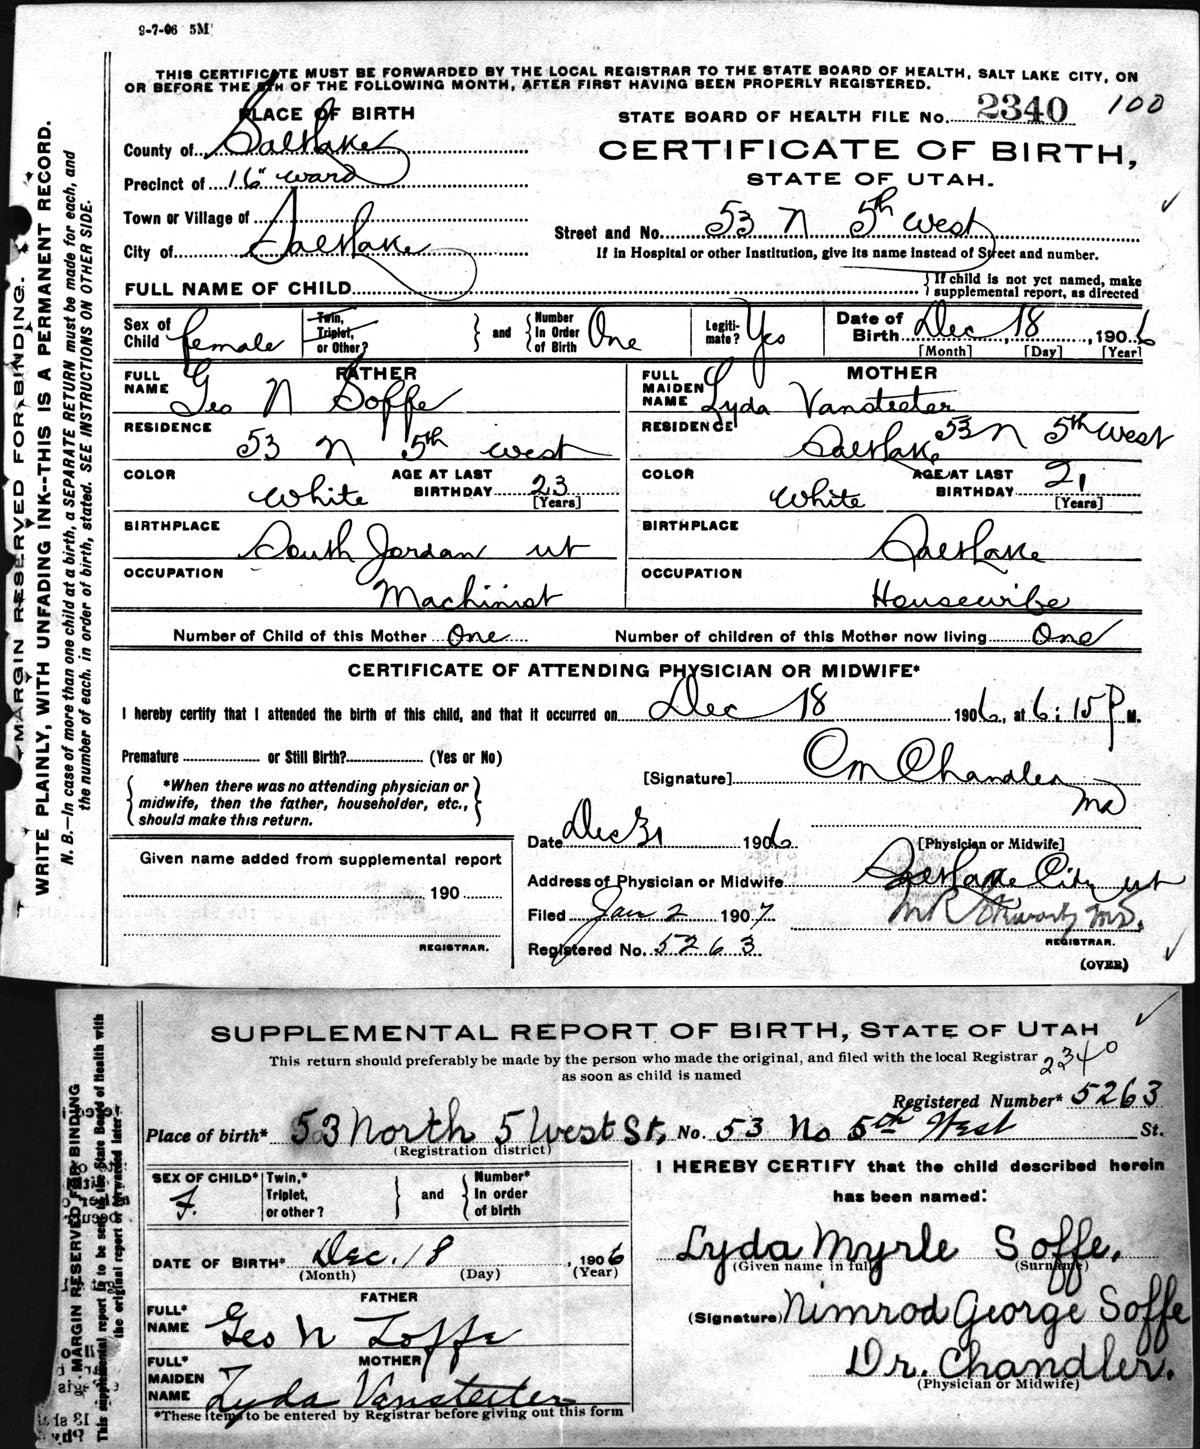 9-7-06 5M
THIS CERTIFICATE MUST BE FORWARDED BY THE LOCAL REGISTRAR TO THE STATE BOARD OF HEALTH, SALT LAKE CITY, ON
OR BEFORE THE 5TH OF THE FOLLOWING MONTH, AFTER FIRST HAVING BEEN PROPERLY REGISTERED.
PLACE OF BIRTH
STATE BOARD OF HEALTH FILE No. 2340 100
County of Salt Lake
CERTIFICATE OF BIRTH,
STATE OF UTAH.
Precinct of 16" ward
Town or Village of
Street and No. 53 N 5th West
City of Salt Lake
If in Hospital or other Institution, give its name instead of Street and number.
FULL NAME OF CHILD
If child is not yet named, make
supplemental report, as directed
Sex of Child female
Twin, Triplet, or Other?
and
Number In Order of Birth One
Legiti-mate? Yes
Date of Birth Dec 18, 1906
[Month] [Day] [Year]
FATHER
FULL NAME Geo N Soffe
MOTHER
FULL MAIDEN NAME Lyda Vansteeter
RESIDENCE 53 N 5th West
RESIDENCE Salt Lake 53 N 5th West
COLOR White AGE AT LAST BIRTHDAY 23 [Years]
COLOR White AGE AT LAST BIRTHDAY 21 [Years]
BIRTHPLACE South Jordan ut
BIRTHPLACE Salt Lake
OCCUPATION Machinist
OCCUPATION Housewife
Number of Child of this Mother One
Number of children of this Mother now living One
CERTIFICATE OF ATTENDING PHYSICIAN OR MIDWIFE*
I hereby certify that I attended the birth of this child, and that it occurred on Dec 18 1906, at 6:15 P M.
Premature or Still Birth? (Yes or No)
*When there was no attending physician or
midwife, then the father, householder, etc.,
should make this return.
[Signature] C M Chandler
MD
Date Dec 31 1906
[Physician or Midwife]
Given name added from supplemental report
190
REGISTRAR.
Address of Physician or Midwife Salt Lake City ut
Filed Jan 2 1907
Registered No. 5263
REGISTRAR.
(OVER)
MARGIN RESERVED FOR BINDING.
WRITE PLAINLY, WITH UNFADING INK--THIS IS A PERMANENT RECORD.
N. B.—In case of more than one child at a birth, a SEPARATE RETURN must be made for each, and
the number of each, in order of birth, stated. SEE INSTRUCTIONS ON OTHER SIDE.
SUPPLEMENTAL REPORT OF BIRTH, STATE OF UTAH
This return should preferably be made by the person who made the original, and filed with the local Registrar
as soon as child is named
2340
Registered Number* 5263
Place of birth* 53 North 5 West St, No. 53 No 5th West St.
(Registration district)
SEX OF CHILD* F.
Twin,* Triplet, or other?
and
Number* In order of birth
I HEREBY CERTIFY that the child described herein
has been named:
DATE OF BIRTH* Dec. 18, 1906
(Month) (Day) (Year)
Lyda Myrle Soffe,
(Given name in full) (Surname)
FATHER
FULL* NAME Geo N Zoffe
(Signature) Nimrod George Soffe
MOTHER
FULL* MAIDEN NAME Lyda Vansteeter
Dr. Chandler.
(Physician or Midwife)
*These items to be entered by Registrar before giving out this form
MARGIN RESERVED FOR BINDING
This supplemental report is to be sent to the State Board of Health with
the original report or forwarded later